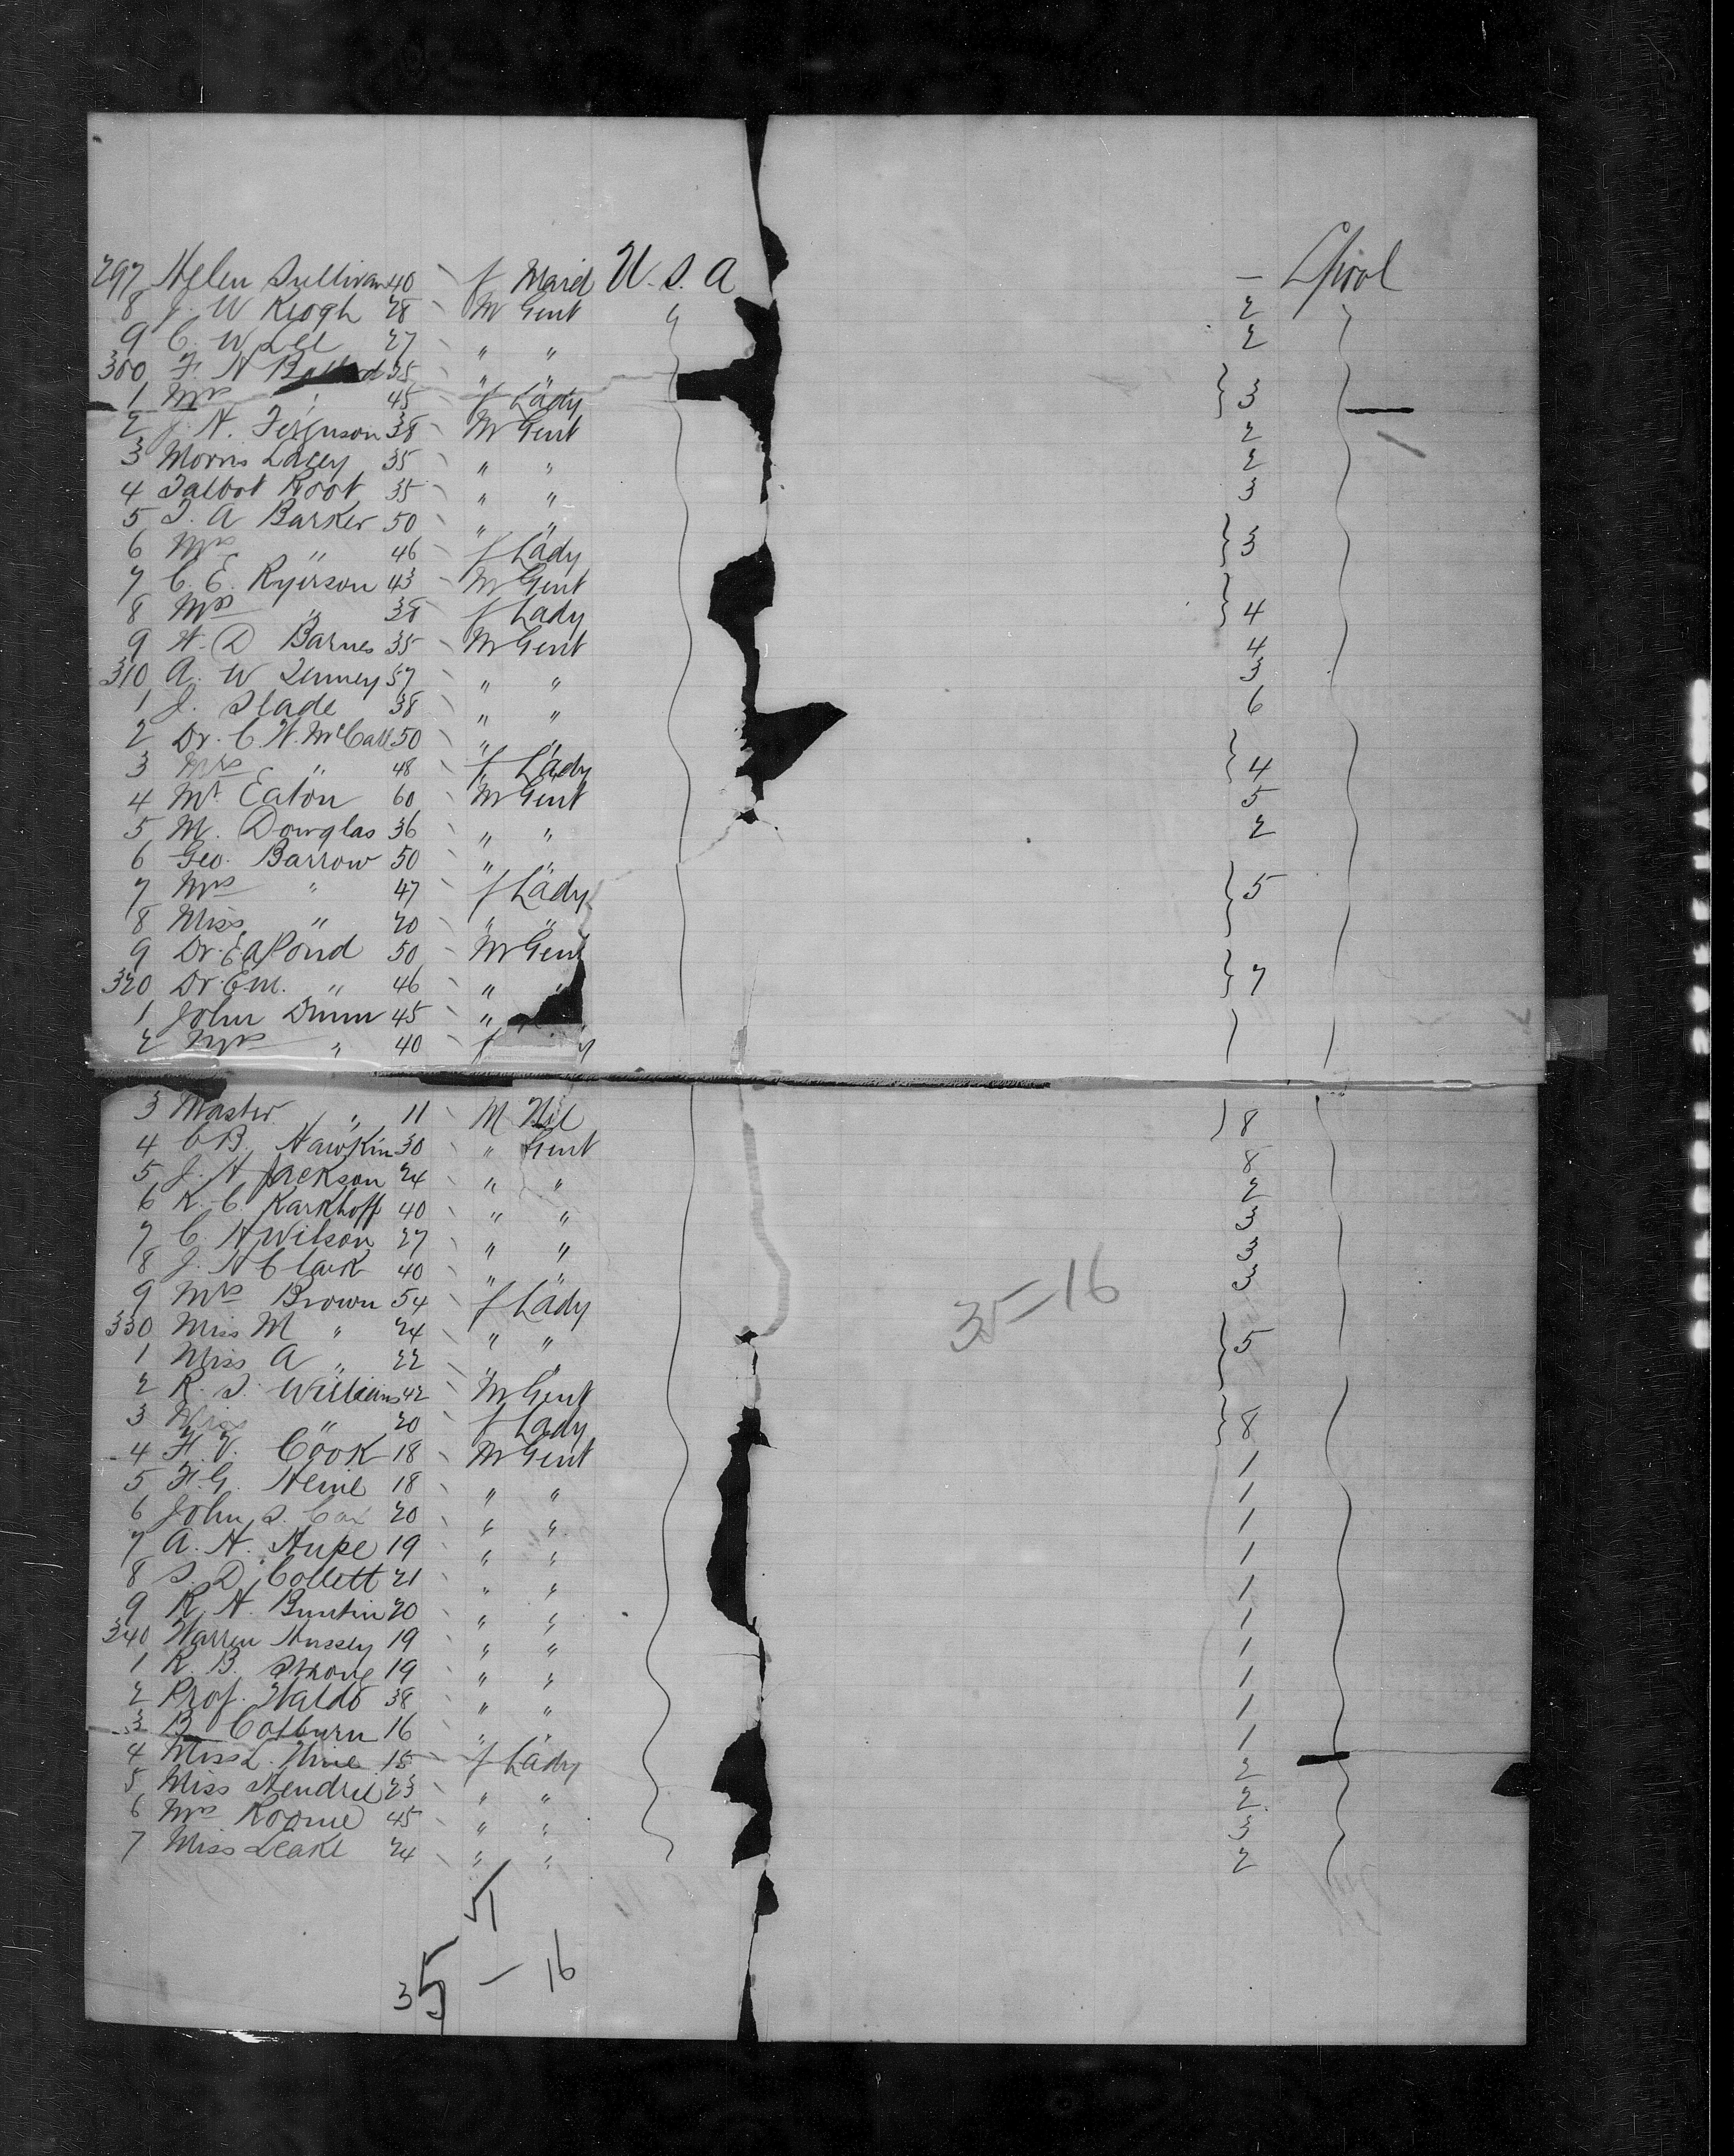 297 Helen Sullivan 40 f Maid U. S. A — L'pool
8 J. W Keogh 28 M Gent 2
9 C. W Lee 27 " " 2
300 F. H 35 " "
1 Mrs " 45 f Lady } 3
2 J. H. Ferguson 38 M Gent 2
3 Morris Lacey 35 " " 2
4 Talbot Root 35 " " 3
5 T. A Barker 50 " "
6 Mrs " 46 f Lady } 3
7 C. E. Ryerson 43 M Gent
8 Mrs " 38 f Lady } 4
9 H. D Barnes 35 M Gent 4
310 A. W Tenney 57 " " 3
1 J. Slade 38 " " 6
2 Dr. C. H. McCall 50 " "
3 Mrs " 48 f Lady } 4
4 Mr Eaton 60 M Gent 5
5 M. Douglas 36 " " 2
6 Geo. Barrow 50 " "
7 Mrs " 47 f Lady } 5
8 Miss " 20 " "
9 Dr. E A Pond 50 M Gent
320 Dr. E M. " 46 " " } 7
1 John Dunn 45 "
2 Mrs " 40 f
3 Master " 11 M Nil } 8
4 C B. Hawkin 30 " Gent 8
5 J. H Jackson 24 " " 2
6 K. C. Karkhoff 40 " " 3
7 C. H Wilson 27 " " 3
8 J. H Clark 40 " " 3
9 Mrs Brown 54 f Lady
330 Miss M " 24 " " } 5
1 Miss A " 22 " "
2 R. S. Williams 42 M Gent
3 Miss " 20 f Lady } 8
4 F. V. Cook 18 M Gent 1
5 F. G. Heine 18 " " 1
6 John S. Cox 20 " " 1
7 A. H. Hupe 19 " " 1
8 S. D. Collett 21 " " 1
9 R. H. Buntin 20 " " 1
340 Warren Hussey 19 " " 1
1 R. B. Strong 19 " " 1
2 Prof. Waldo 38 " " 1
3 B Colburn 16 " " 1
4 Miss L. 15 f Lady 2
5 Miss Hendrie 23 " " 2
6 Mrs Roome 45 " " 3
7 Miss Leake 24 " " 2
35 – 16
51
35 – 16